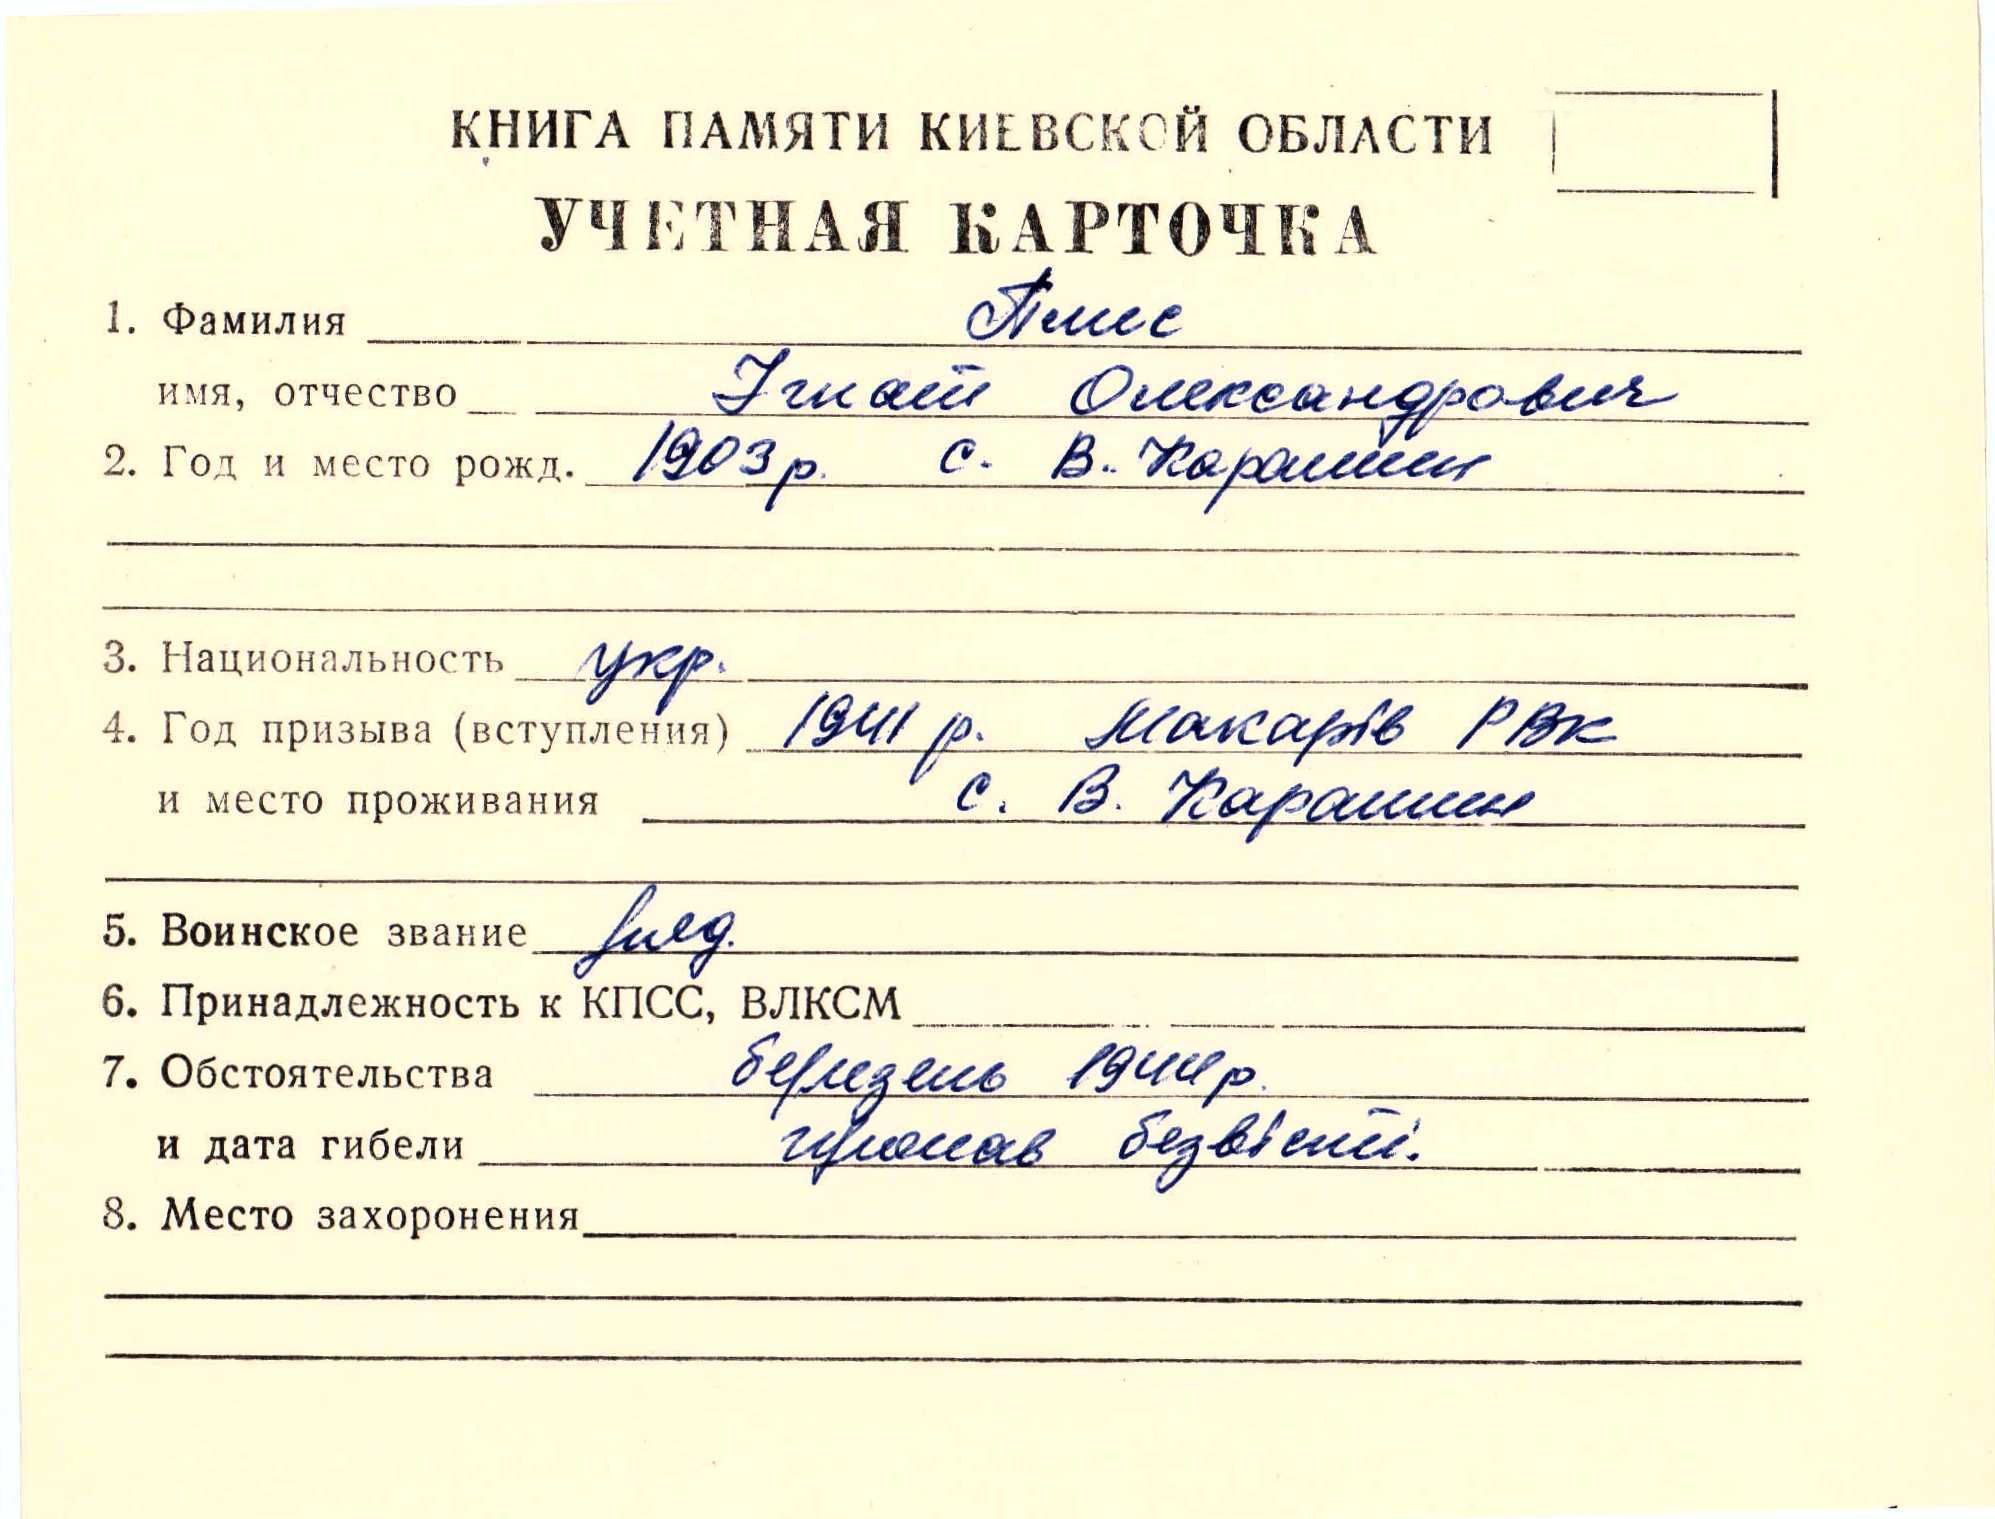 КНИГА ПАМЯТИ КИЕВСКОЙ ОБЛАСТИ
УЧЕТНАЯ КАРТОЧКА
1. Фамилия Плис
имя, отчество Ігнат Олександрович
2. Год и место рожд. 1903 р. с. В. Карашин
3. Национальность укр.
4. Год призыва (вступления) 1941 р. Макарів РВК
и место проживания с. В. Карашин
5. Воинское звание ряд.
6. Принадлежность к КПСС, ВЛКСМ
7. Обстоятельства березень 1944 р.
и дата гибели пропав безвісті.
8. Место захоронения